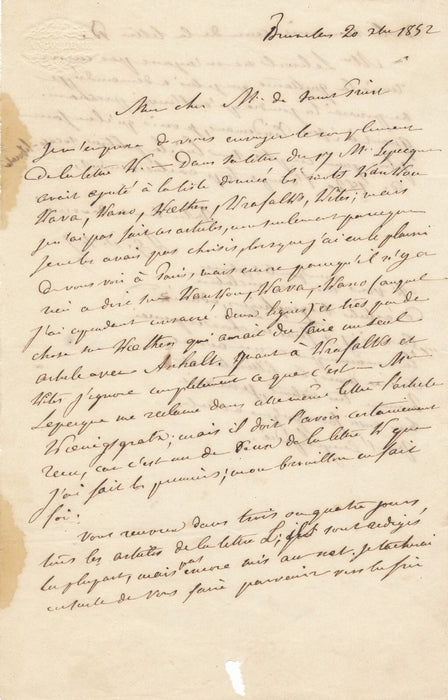 Bruxelles 20 xbre 1852
Mon cher Mr de Saint Priest
Je m'empresse de vous envoyer le complément
de la lettre W. Dans sa lettre du 17 Mr Lepecq
avait ajouté à la liste donnée les mots
Wava, Wano, Wrafalls, Wiles; mais
je n'ai pas fait ces articles, non seulement parceque
je ne les avais pas choisis, lorsque j'ai eu le plaisir
de vous voir à Paris, mais encore parcequ'il n'y a
rien à dire sur Wava, Wano (auquel
j'ai cependant consacré deux lignes) et très peu de
chose sur qui aurait du faire un seul
article avec Anhalt. Quant à Wrafalls et
Wiles j'ignore complètement ce que c'est. Mr
Lepecque me réclame dans cette même lettre l'article
Kœnigsgratz; mais il doit l'avoir certainement
reçu, car c'est un de ceux de la lettre W que
j'ai fait les premiers; mon brouillon en fait
foi.
Vous recevrez dans trois ou quatre jours
tous les articles de la lettre L; ils sont rédigés
la plupart, mais pas encore mis au net. Je tacherai
ensuite de vous faire parvenir vers la fin